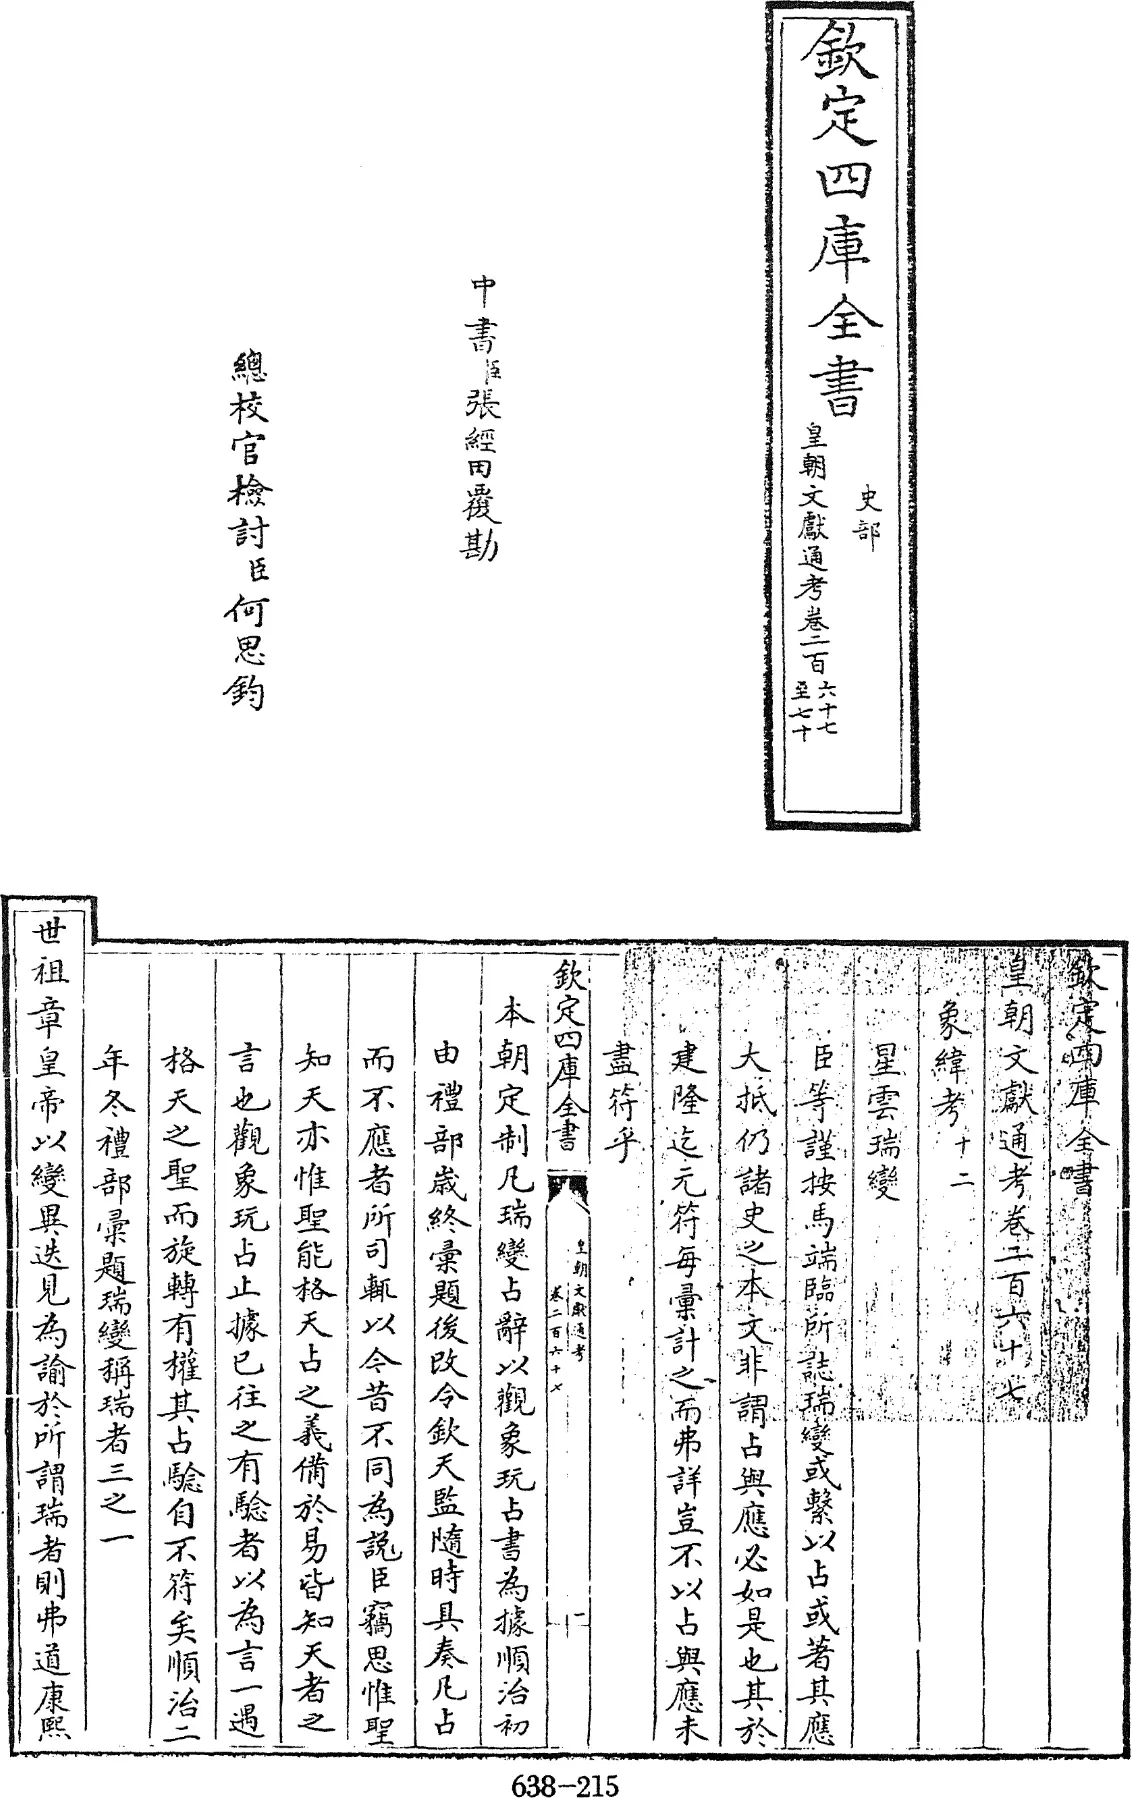 欽定四庫全書
史部
皇朝文獻通考卷二百六十七至七十
中書臣張經田覆勘
總校官檢討臣何思鈞
欽定四庫全書
皇朝文獻通考卷二百六十七
象緯考十二
星雲瑞變
臣等謹按馬端臨所誌瑞變或繫以占或著其應
大抵仍諸史之本文非謂占與應必如是也其於
建隆迄元符每彚計之而弗詳豈不以占與應未
盡符乎
欽定四庫全書
皇朝文獻通考
卷二百六十七
二
本朝定制凡瑞變占辭以觀象玩占書為據順治初
由禮部歲終彚題後改令欽天監隨時具奏凡占
而不應者所司輒以今昔不同為說臣竊思惟聖
知天亦惟聖能格天占之義備於易皆知天者之
言也觀象玩占止據已往之有驗者以為言一遇
格天之聖而旋轉有權其占驗自不符矣順治二
年冬禮部彚題瑞變稱瑞者三之一
世祖章皇帝以變異迭見為諭於所謂瑞者則弗道康熙
638-215